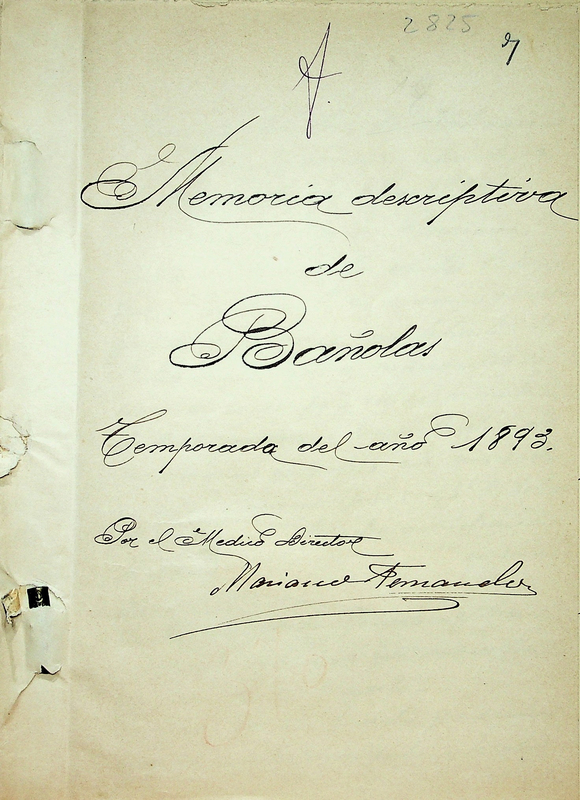 2825
Memoria descriptiva
de
Bañolas
Temporada del año 1893.
Por el Medico Director
Mariano Fernandez